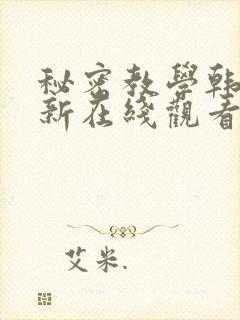 秘密教學韩
新在綫觀看
艾米.